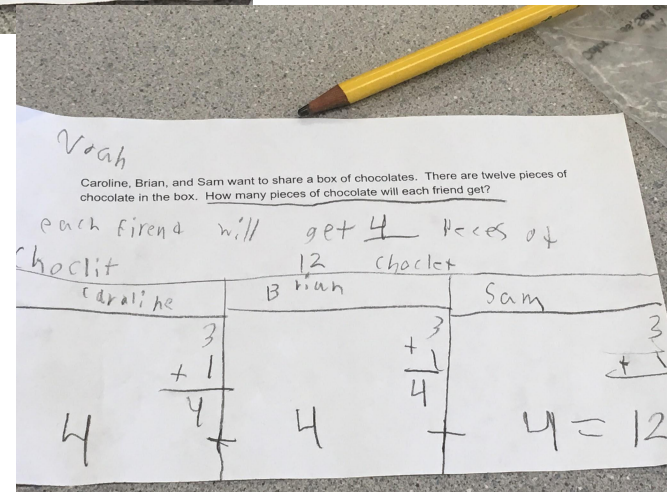 Noah
Caroline, Brian, and Sam want to share a box of chocolates. There are twelve pieces of
chocolate in the box. How many pieces of chocolate will each friend get?
each firend will get 4 Peces of
choclit 12 choclet
Caraline Brian Sam
3 3 3
+ 1 + 1 + 1
4 4
4 + 4 + 4 = 12